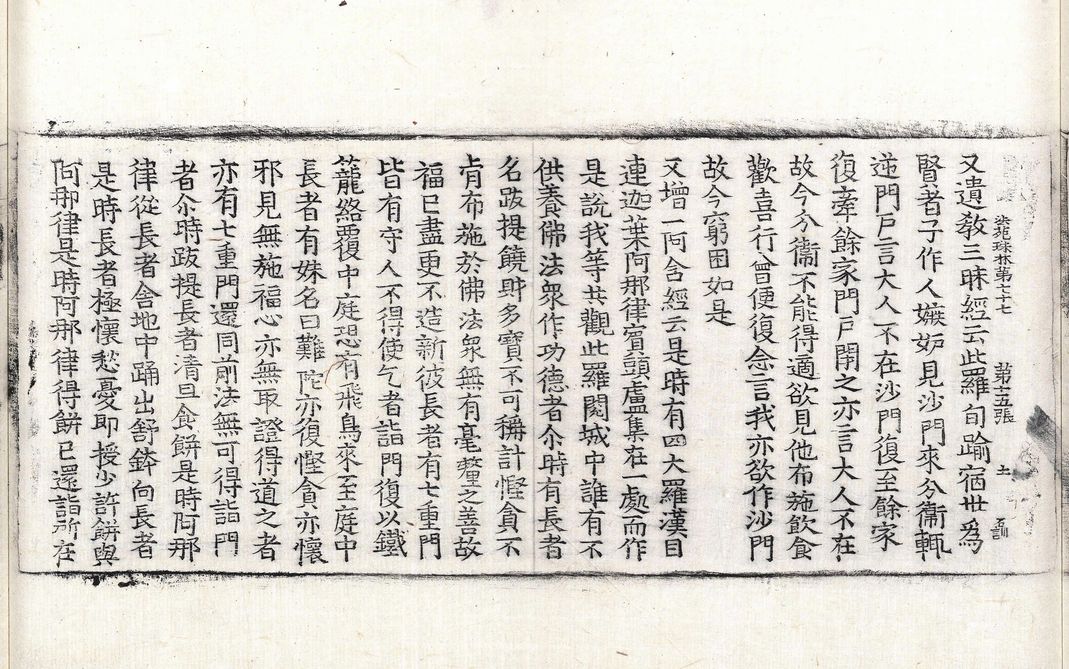 法苑珠林第七十七 第十五張 土
又遺教三昧經云此羅旬踰宿世爲
賢者子作人嫉妬見沙門來分衛輒
逆門戶言大人不在沙門復至餘家
復牽餘家門戶閉之亦言大人不在
故今分衛不能得適欲見他布施飲食
歡喜行會便復念言我亦欲作沙門
故今窮困如是
又增一阿含經云是時有四大羅漢目
連迦葉阿那律賓頭盧集在一處而作
是說我等共觀此羅閱城中誰有不
供養佛法衆作功德者尒時有長者
名跋提饒財多寶不可稱計慳貪不
肯布施於佛法衆無有毫釐之善故
福已盡更不造新彼長者有七重門
皆有守人不得使乞者詣門復以鐵
籠絡覆中庭恐有飛鳥來至庭中
長者有姝名曰難陀亦復慳貪亦懷
邪見無施福心亦無取證得道之者
亦有七重門還同前法無可得詣門
者尒時跋提長者清旦食餅是時阿那
律從長者舍地中踊出舒鉢向長者
是時長者極懷愁憂即授少許餅與
阿那律是時阿那律得餅已還詣所在